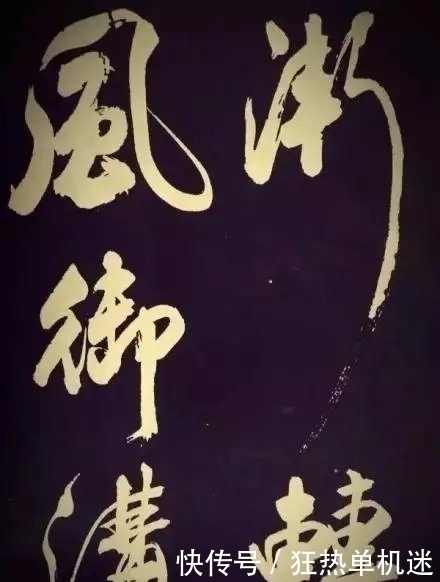 漸轉
風御溝
快传号 / 狂热单机迷